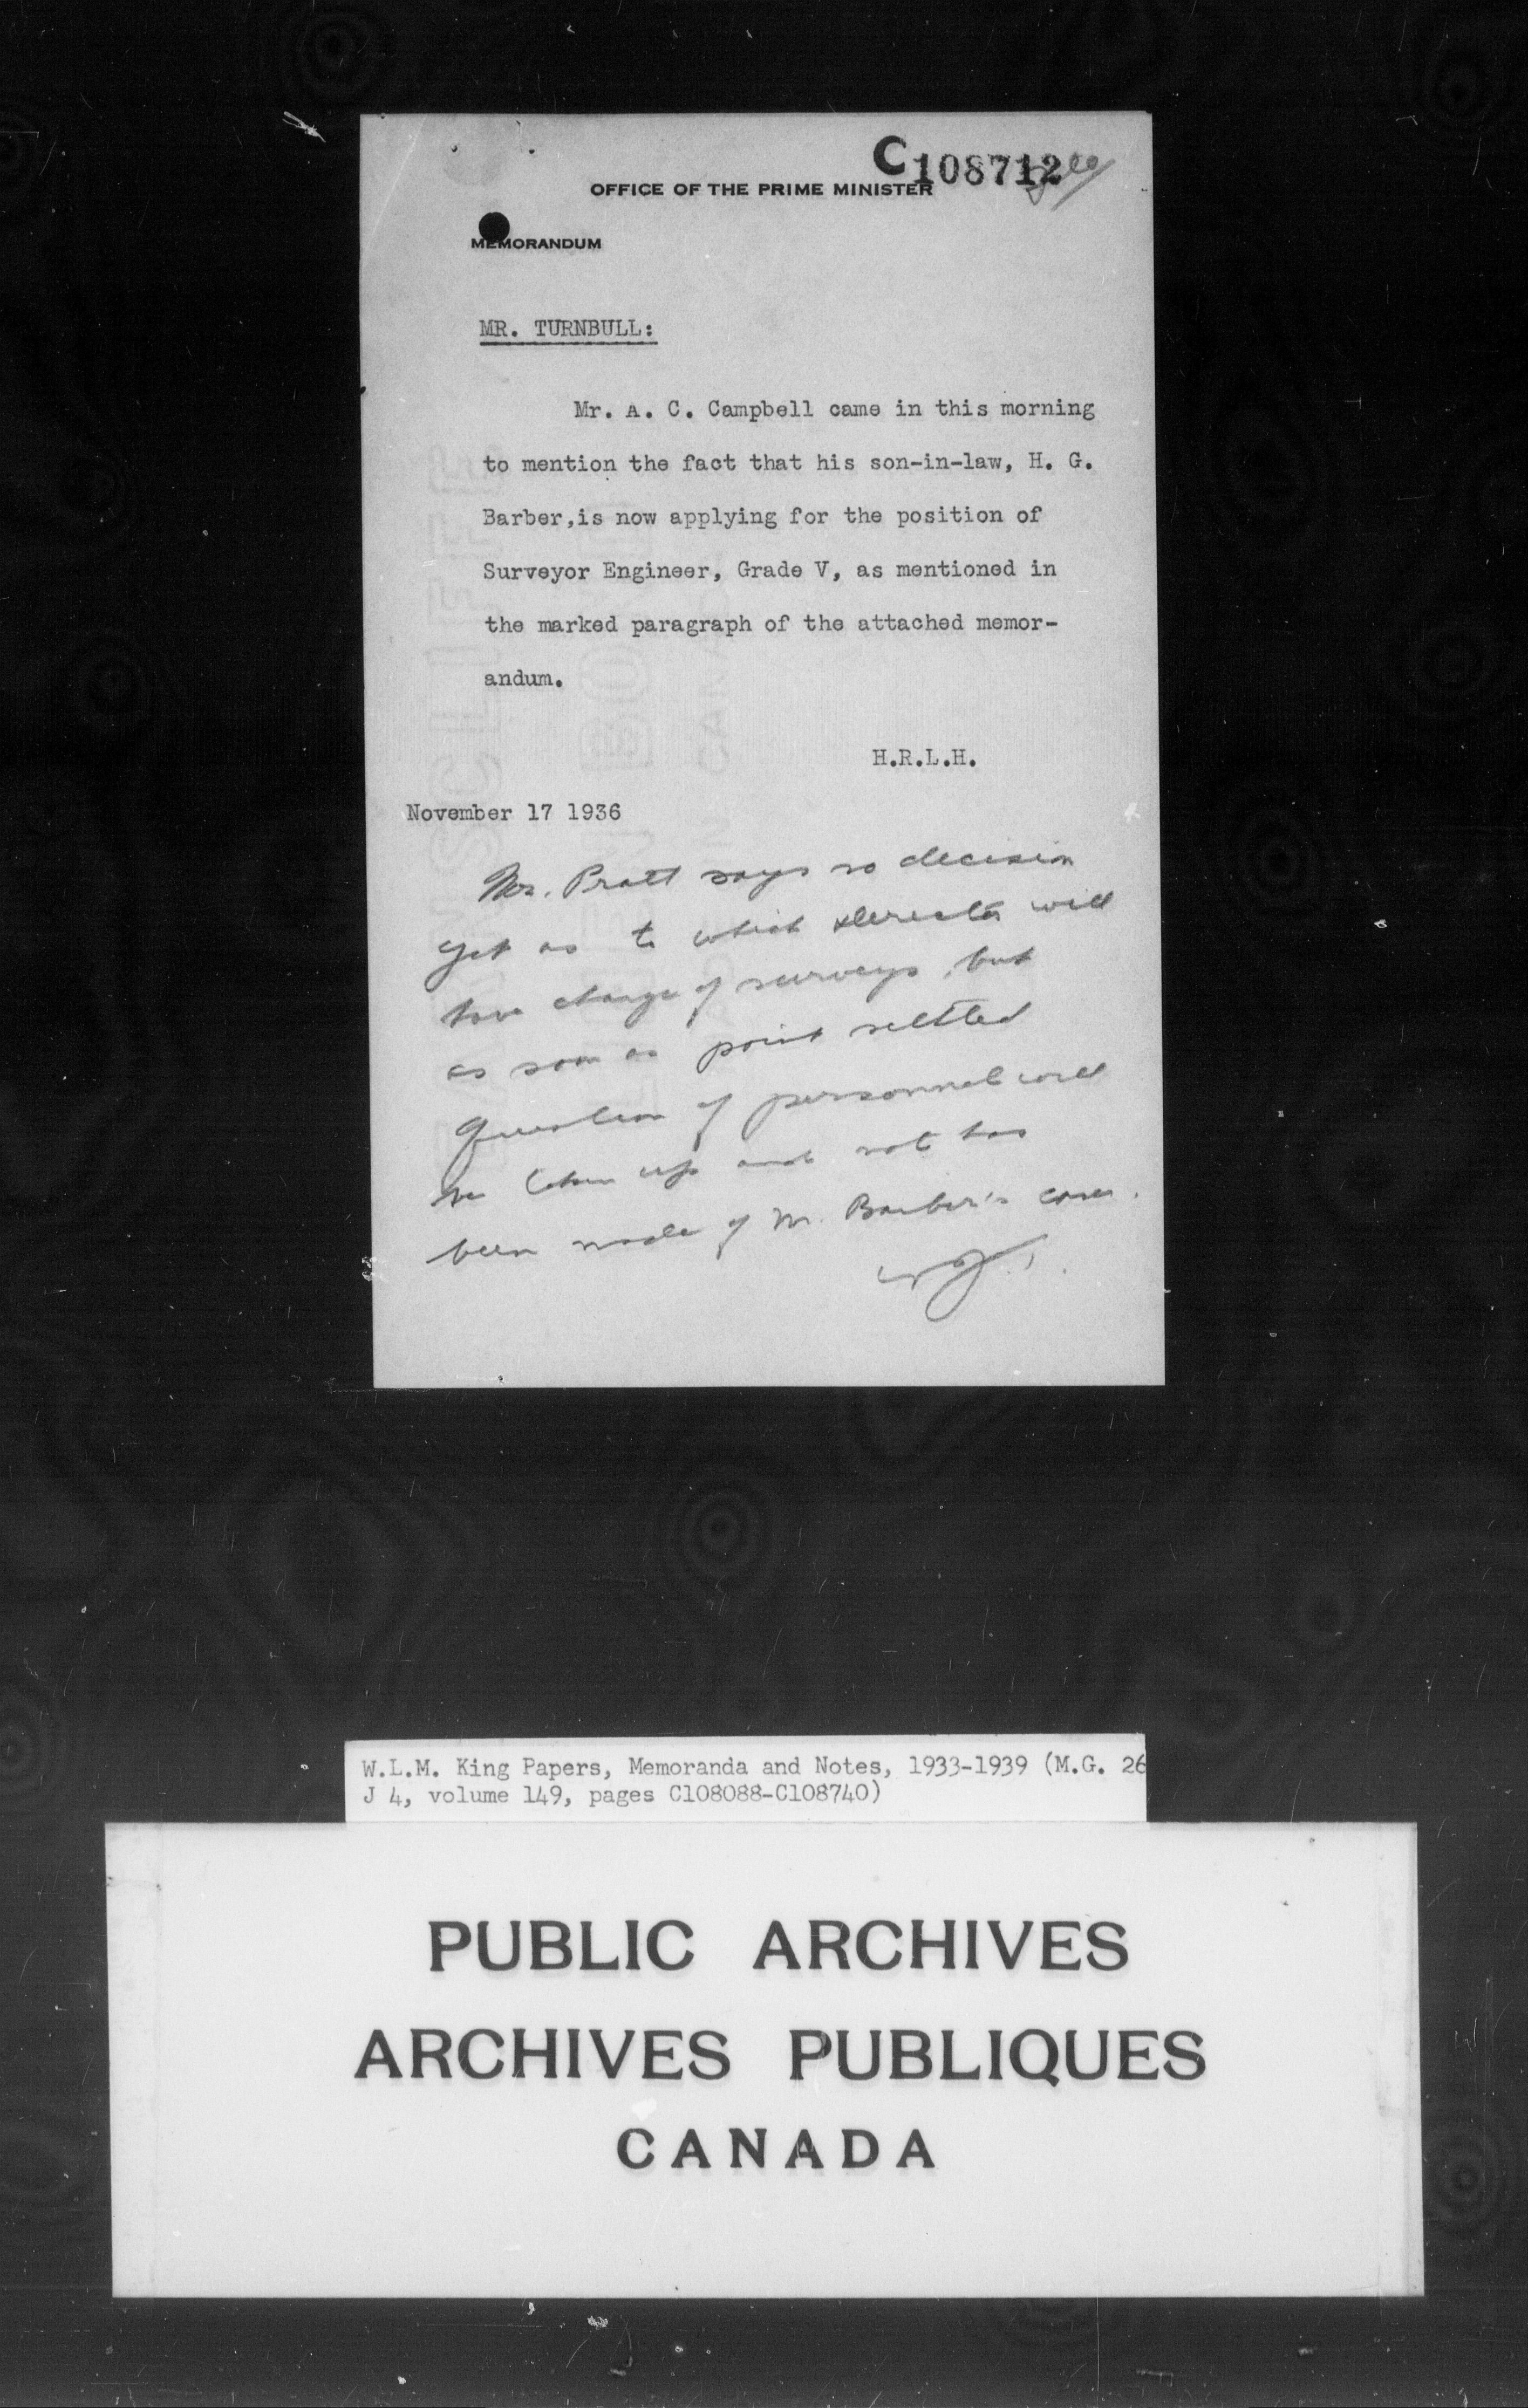 C108712
OFFICE OF THE PRIME MINISTER
MEMORANDUM
MR. TURNBULL:
Mr. A. C. Campbell came in this morning
to mention the fact that his son-in-law, H. G.
Barber,is now applying for the position of
Surveyor Engineer, Grade V, as mentioned in
the marked paragraph of the attached memor-
andum.
H.R.L.H.
November 17 1936
Mr. Pratt says no decision
yet as to which director will
have charge of surveys, but
as soon as point settled
question of personnel will
be taken up and note has
been made of Mr. Barber's case.
W.L.M. King Papers, Memoranda and Notes, 1933-1939 (M.G. 26
J 4, volume 149, pages C108088-C108740)
PUBLIC ARCHIVES
ARCHIVES PUBLIQUES
CANADA